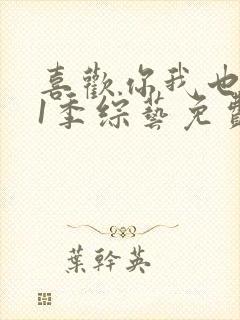 喜歡你我也
1季綜藝免費
葉幹英